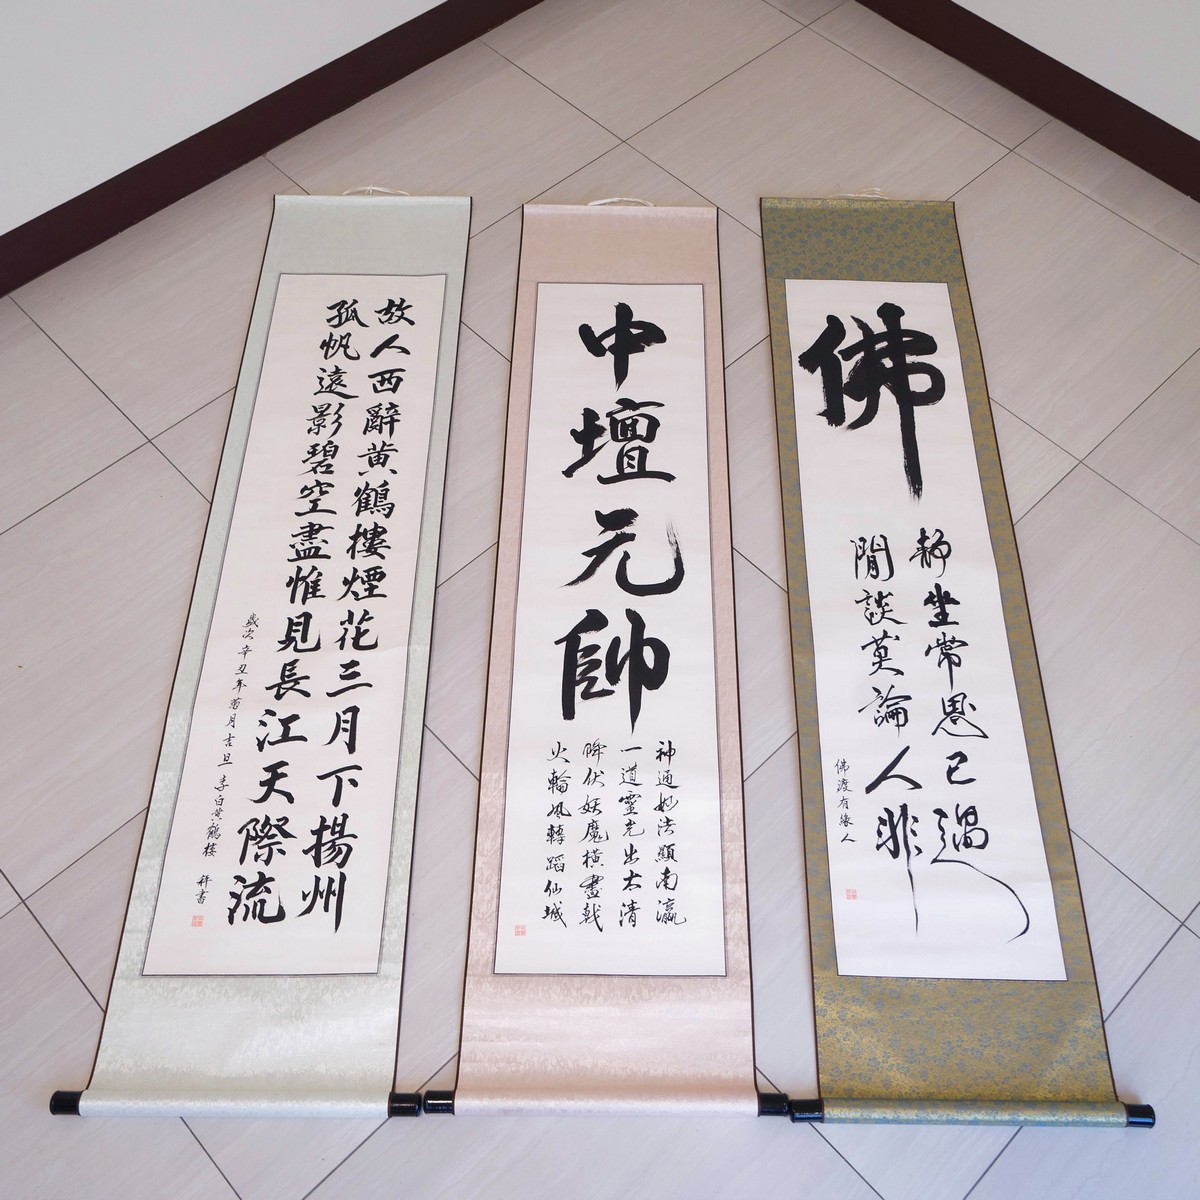 故人西辭黄鶴樓煙花三月下揚州
孤帆遠影碧空盡惟見長江天際流
歲次辛丑年菊月吉旦 李白黄鶴樓
中壇元帥
神通妙法顯南瀛
一道靈光出太清
降伏妖魔橫畫戟
火輪風轉蹈仙城
佛
靜坐常思己過
閒談莫論人非
佛渡有緣人